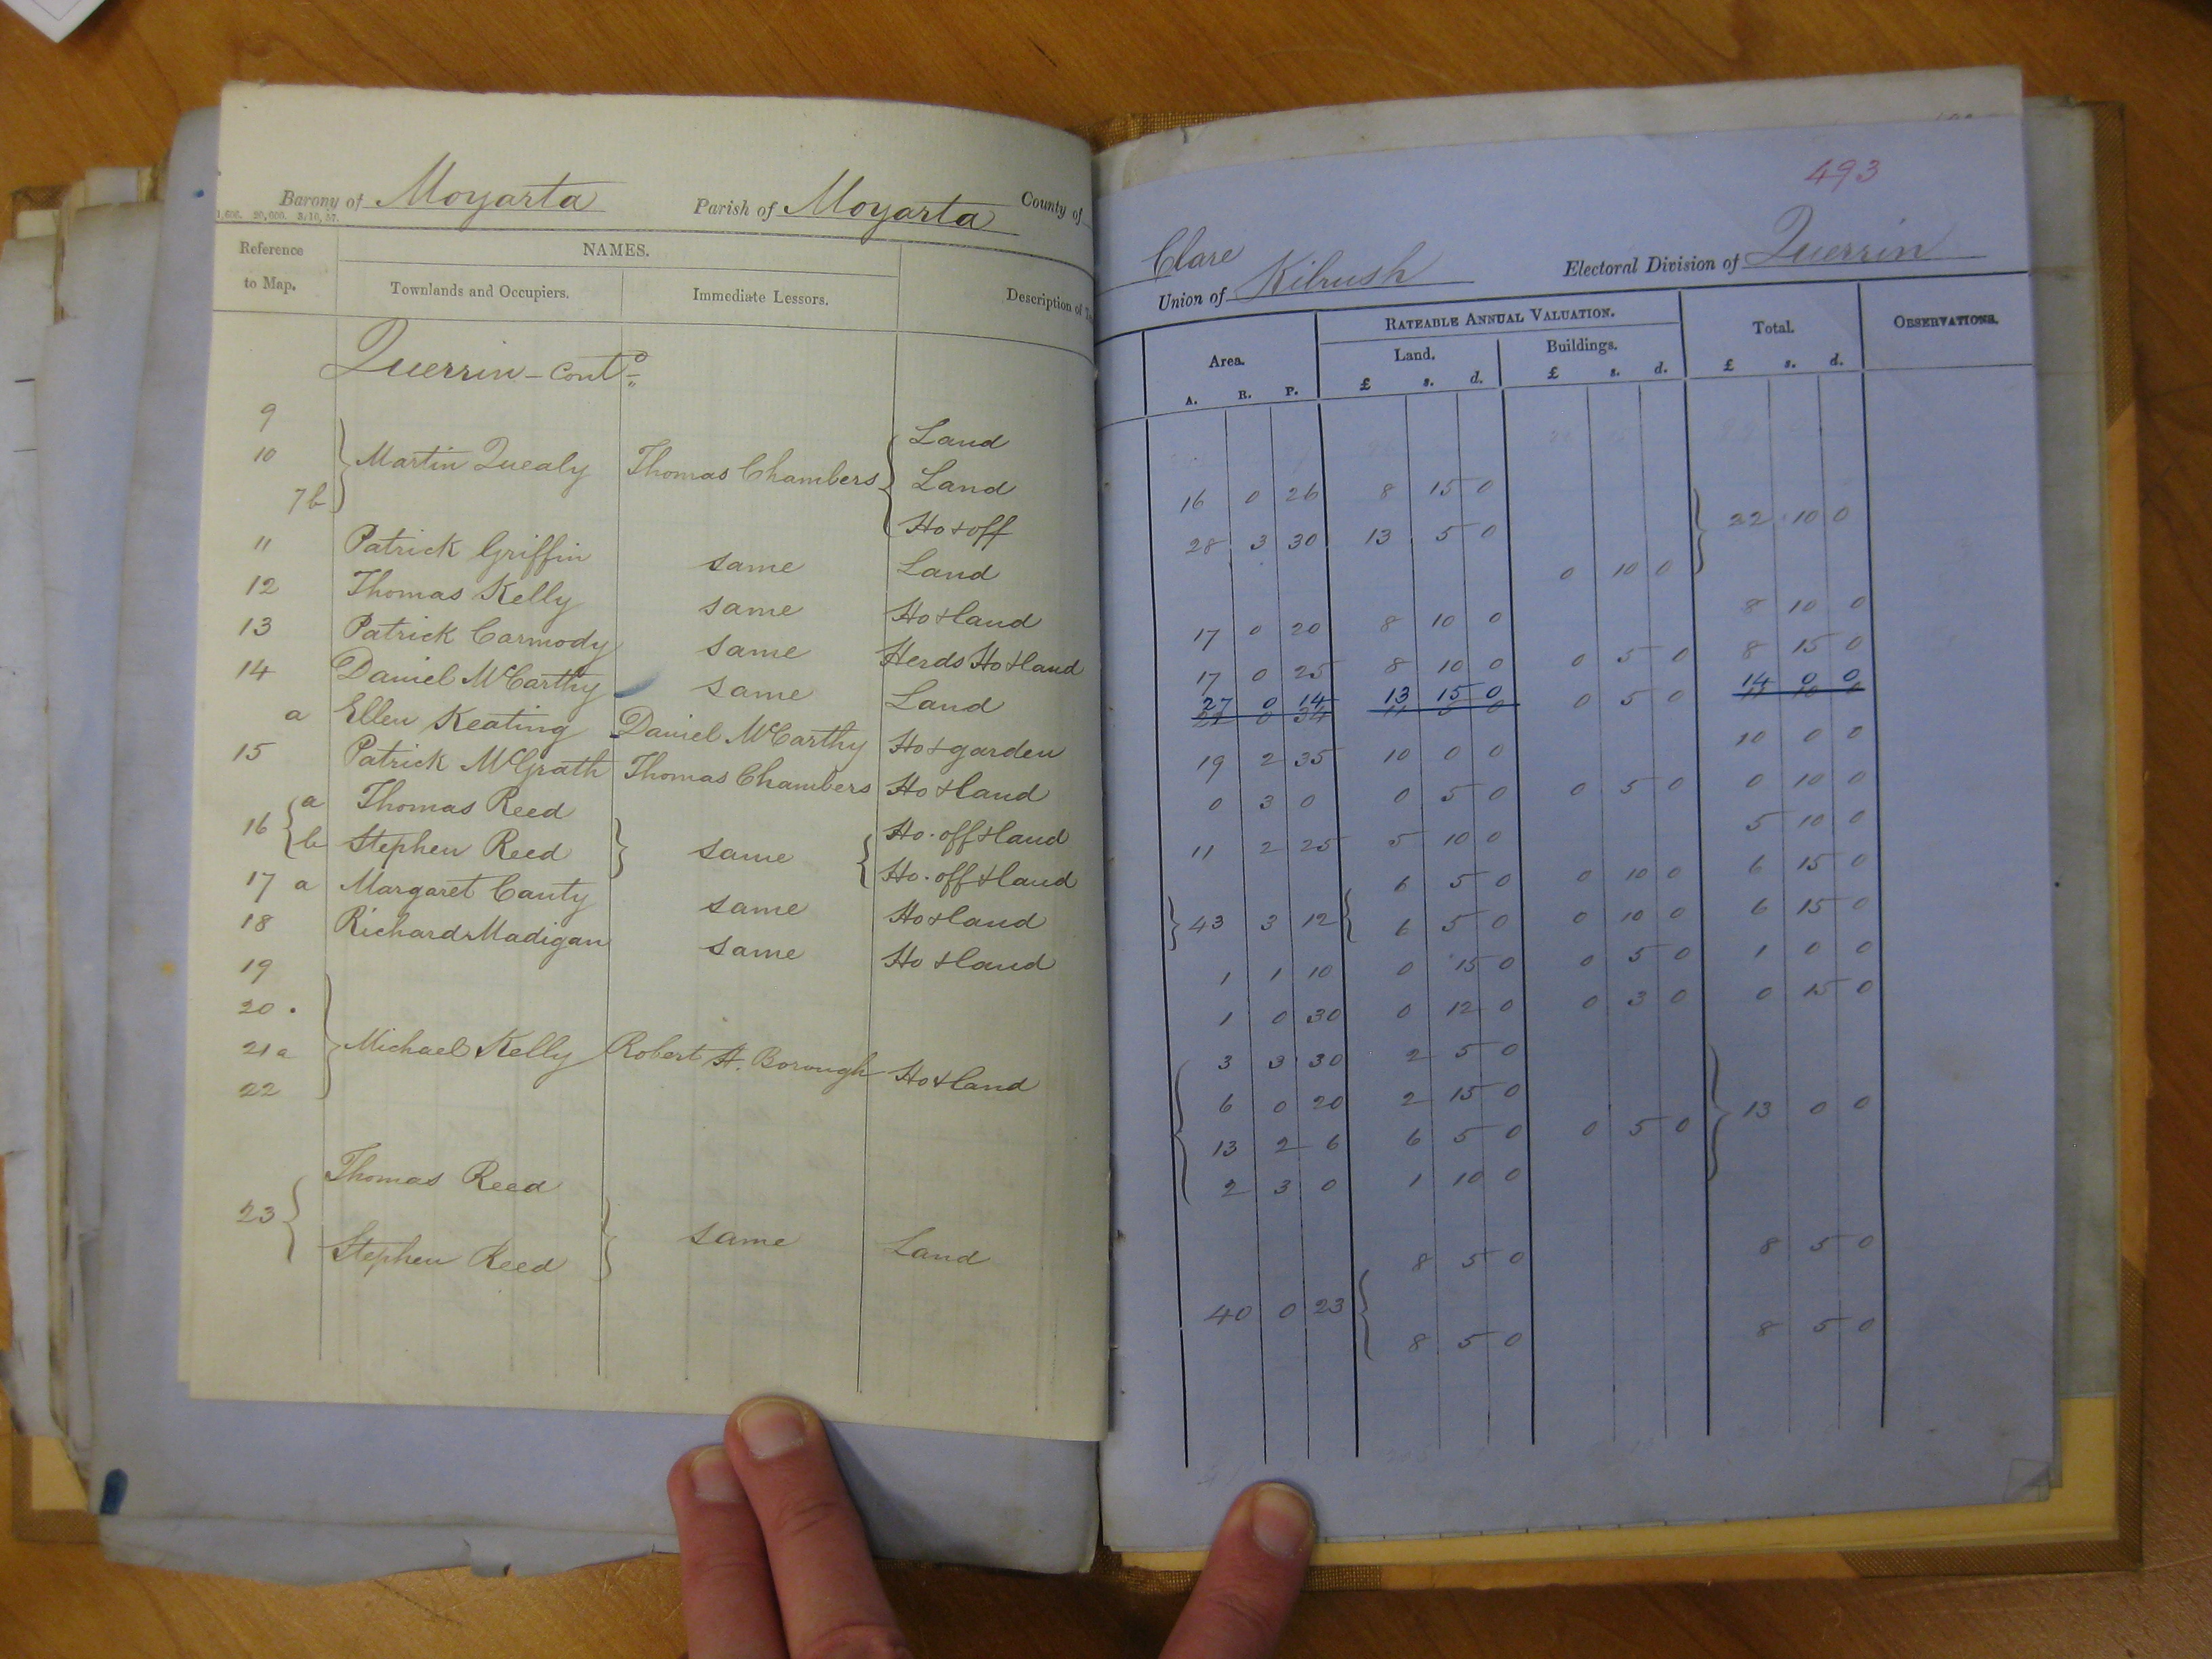 Barony of Moyarta Parish of Moyarta County of
1,606. 20,000. 3/10, 57.
Reference to Map.
NAMES.
Townlands and Occupiers. Immediate Lessors. Description of
Querrin - Contd
9 Land
10 Martin Quealy Thomas Chambers Land
7b Ho & off
11 Patrick Griffin same Land
12 Thomas Kelly same Ho & land
13 Patrick Carmody same Herds Ho & land
14 Daniel McCarthy same Land
a Ellen Keating Daniel McCarthy Ho & garden
15 Patrick McGrath Thomas Chambers Ho & land
16 a Thomas Reed same Ho. off & land
b Stephen Reed Ho. off & land
17 a Margaret Canty same Ho & land
18 Richard Madigan same Ho & land
19
20 .
21a Michael Kelly Robert H. Borough Ho & land
22
Thomas Reed
23 same Land
Stephen Reed
493
Clare
Union of Kilrush Electoral Division of Querrin
Area. RATEABLE ANNUAL VALUATION. Total. OBSERVATIONS.
Land. Buildings.
A. R. P. £ s. d. £ s. d. £ s. d.
16 0 26 8 15 0
28 3 30 13 5 0 22 10 0
0 10 0
17 0 20 8 10 0 8 10 0
17 0 25 8 10 0 0 5 0 8 15 0
27 0 14 13 15 0 0 5 0 14 0 0
19 2 35 10 0 0 10 0 0
0 3 0 0 5 0 0 5 0 0 10 0
11 2 25 5 10 0 5 10 0
6 5 0 0 10 0 6 15 0
43 3 12 6 5 0 0 10 0 6 15 0
1 1 10 0 15 0 0 5 0 1 0 0
1 0 30 0 12 0 0 3 0 0 15 0
3 3 30 2 5 0
6 0 20 2 15 0 13 0 0
13 2 6 6 5 0 0 5 0
2 3 0 1 10 0
8 5 0 8 5 0
40 0 23
8 5 0 8 5 0